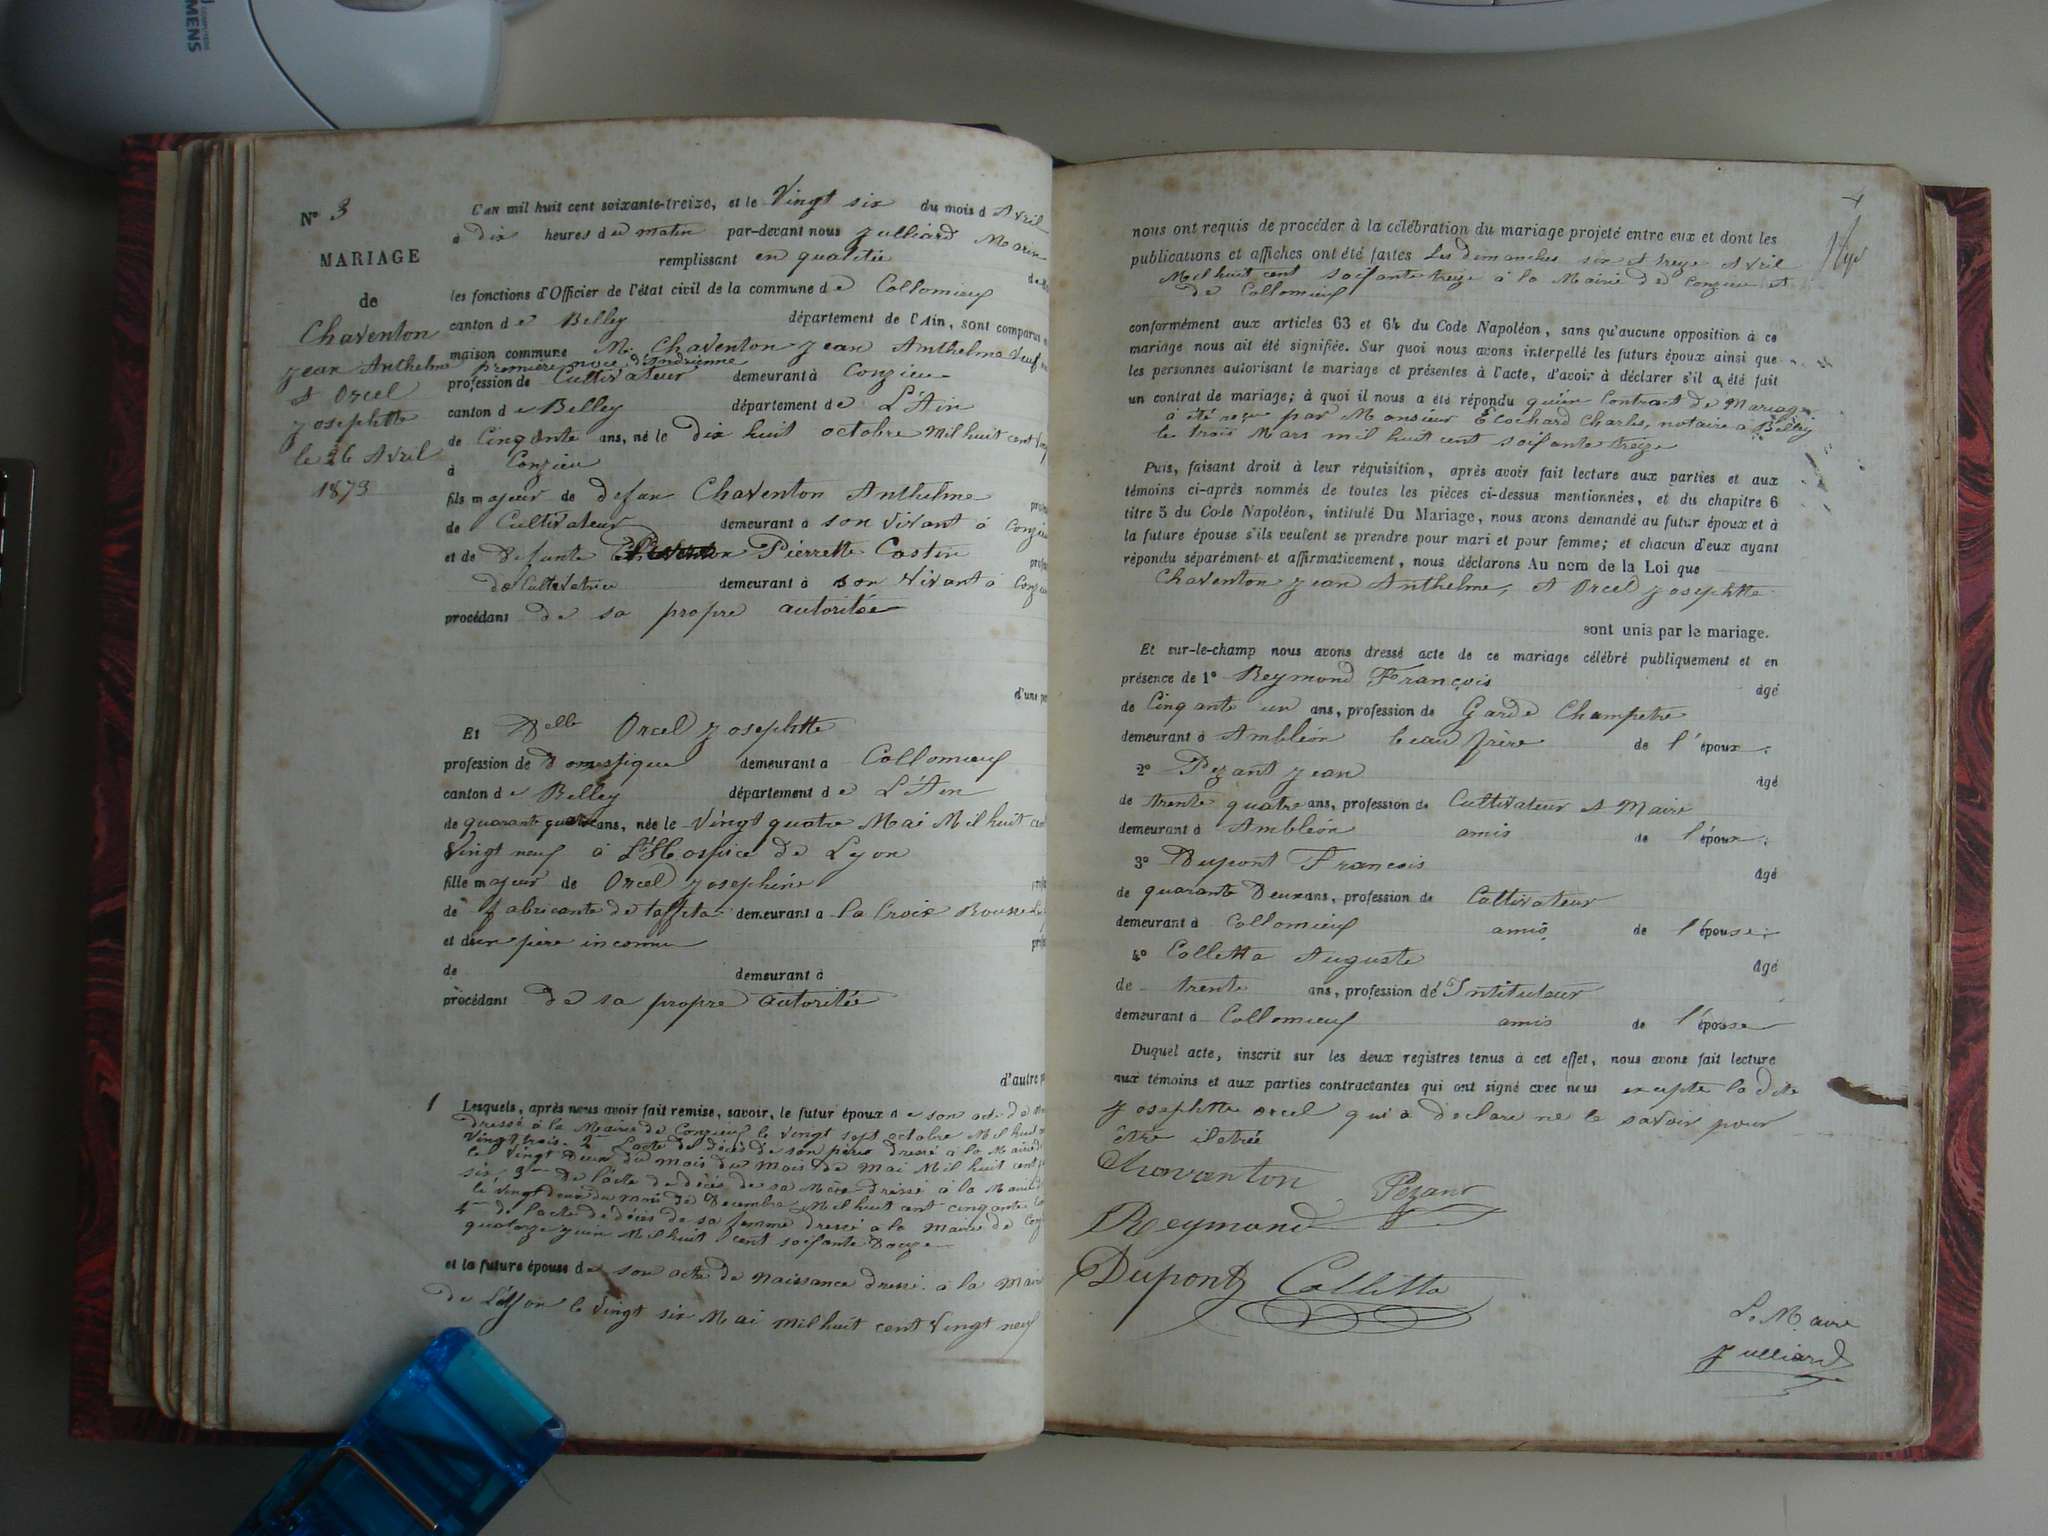 SIEMENS
N° 3
MARIAGE
de
Chaventon
Jean Anthelme
et Orcel
Josephtte
le 26 Avril
1873
L'AN mil huit cent soixante-treize, et le Vingt six du mois d Avril
à dix heures d u matin par-devant nous Julliard Marin
remplissant en qualitée de
les fonctions d'Officier de l'état civil de la commune d e Collomieux
canton d e Belley département de l'Ain, sont comparus
maison commune M. Chaventon Jean Anthelme Veuf
première noce d'Andrienne
profession de Cultivateur demeurant à Conzieu
canton d e Belley département de L'Ain
de Cinqante ans, né le dix huit octobre Mil huit cent
à Conzieu
fils majeur de defun Chaventon Anthelme
de Cultivateur demeurant à son vivant à Conzieu
et de Defunte Pierrette Costin
de Cultivatrice demeurant à son vivant à
procédant de sa propre autoritée
d'une
Et Delle Orcel Josephtte
profession de Domestique demeurant a Collomieux
canton d e Belley département d e L'Ain
de quarante quatre ans, née le Vingt quatre Mai Mil huit
Vingt neuf à L'Hospice de Lyon
fille majeur de Orcel Josephine
de fabricante de taffetas demeurant a la Croix Rousse
et d un père inconnu
de demeurant à
procédant de sa propre autoritée
d'autre
1 Lesquels, après nous avoir fait remise, savoir, le futur époux d e son acte de
dressé à la Mairie de Conzieux le vingt sept octobre Mil huit
Vingt trois. 2° L'acte de décès de son père dressé à la Mairie
le Vingt Deux du mois du mois de Mai Mil huit cent
six 3° De l'acte de décès de sa Mère dressé à la Mairie
le Vingt deux du mois de Decembre Mil huit cent cinquante
4° de l'acte de décès de sa femme dressé a la Mairie de
quatorze Juin Mil huit cent soixante Douze
et la future épouse de son acte de naissance dressé à la Mairie
de Lyon le Vingt six Mai mil huit cent Vingt neuf
4
nous ont requis de procéder à la célébration du mariage projeté entre eux et dont les
publications et affiches ont été faites Les Dimanches six et treize Avril
Mil huit cent soixante treize à la Mairie de Conzieu et
de Collomieux
conformément aux articles 63 et 64 du Code Napoléon, sans qu'aucune opposition à ce
mariage nous ait été signifiée. Sur quoi nous avons interpellé les futurs époux ainsi que
les personnes autorisant le mariage et présentes à l'acte, d'avoir à déclarer s'il a été fait
un contrat de mariage; à quoi il nous a été répondu qu'un Contract de Mariage
à été reçu par Monsieur Ecochard Charles, notaire a Belley
le trois Mars mil huit cent soixante treize
Puis, faisant droit à leur réquisition, après avoir fait lecture aux parties et aux
témoins ci-après nommés de toutes les pièces ci-dessus mentionnées, et du chapitre 6
titre 5 du Code Napoléon, intitulé Du Mariage, nous avons demandé au futur époux et à
la future épouse s'ils veulent se prendre pour mari et pour femme; et chacun d'eux ayant
répondu séparément et affirmativement, nous déclarons Au nom de la Loi que
Chaventon Jean Anthelme, et Orcel Josephtte
sont unis par le mariage.
Et sur-le-champ nous avons dressé acte de ce mariage célébré publiquement et en
présence de 1° Reymond François âgé
de Cinqante un ans, profession de Garde Champetre
demeurant à Ambléon beau frère de l'époux.
2° Pezant Jean âgé
de trente quatre ans, profession de Cultivateur et Maire
demeurant à Ambléon amis de l'époux.
3° Dupont Francois âgé
de quarante Deux ans, profession de Cultivateur
demeurant à Collomieux amis de l'épouse.
4° Colletta Auguste âgé
de trente ans, profession de Intituteur
demeurant à Collomieux amis de l'épouse
Duquel acte, inscrit sur les deux registres tenus à cet effet, nous avons fait lecture
aux témoins et aux parties contractantes qui ont signé avec nous excepte la dite
Josephtte orcel qui a déclaré ne le savoir pour
être iletrée
Chavanton Pezant
Reymond
Dupont Colletta
Le Maire
Julliard